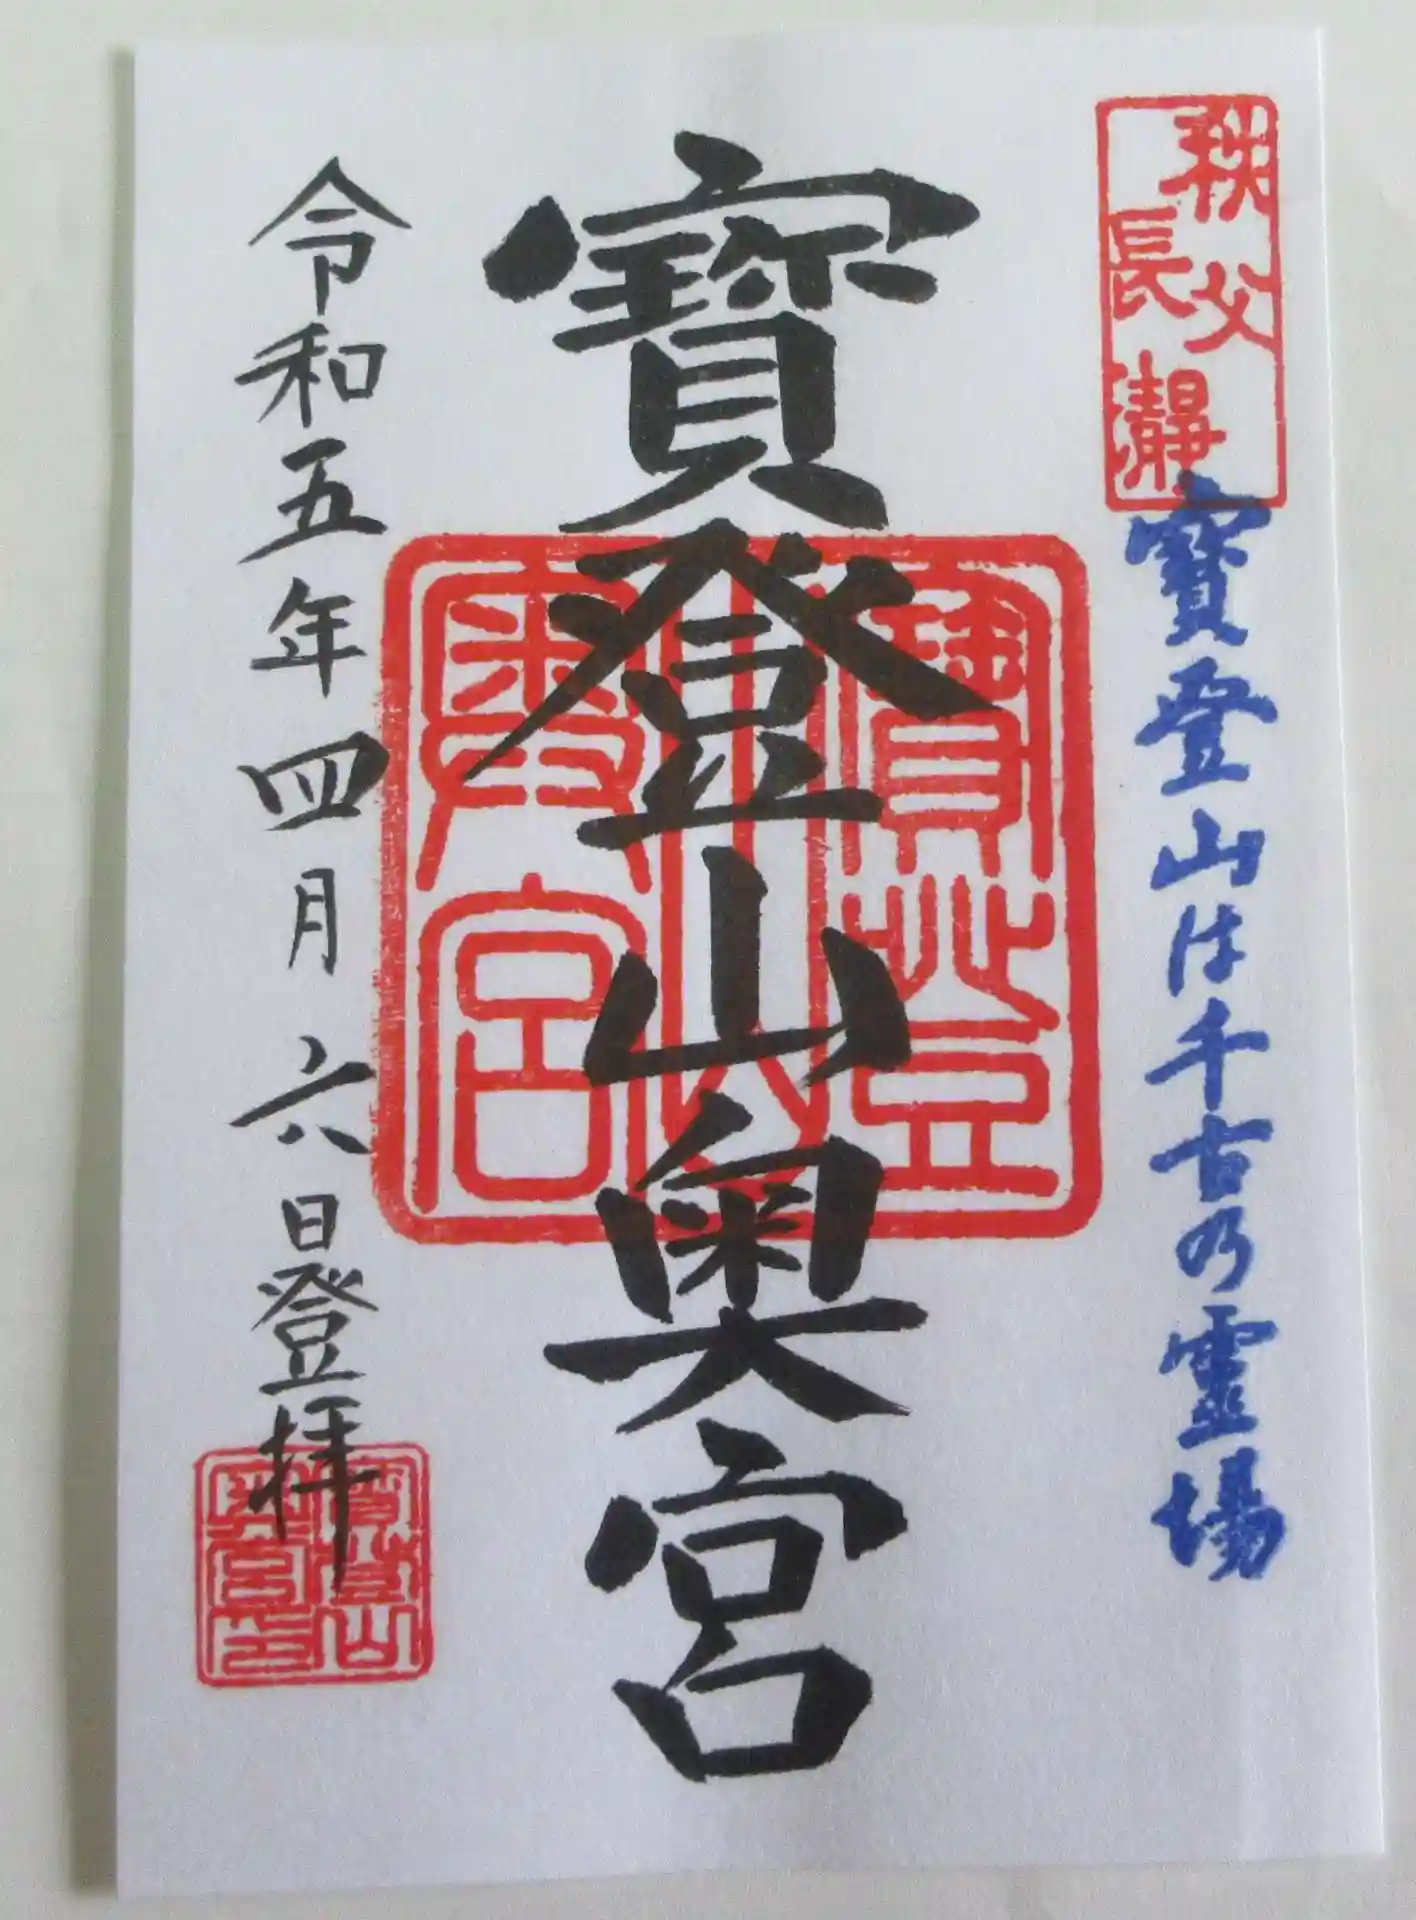 秩父
長瀞
寶登山は千古乃霊場
寶登山奥宮
寶登
山
奥宮
令和五年四月六日登拝
寶登山
奥宮印